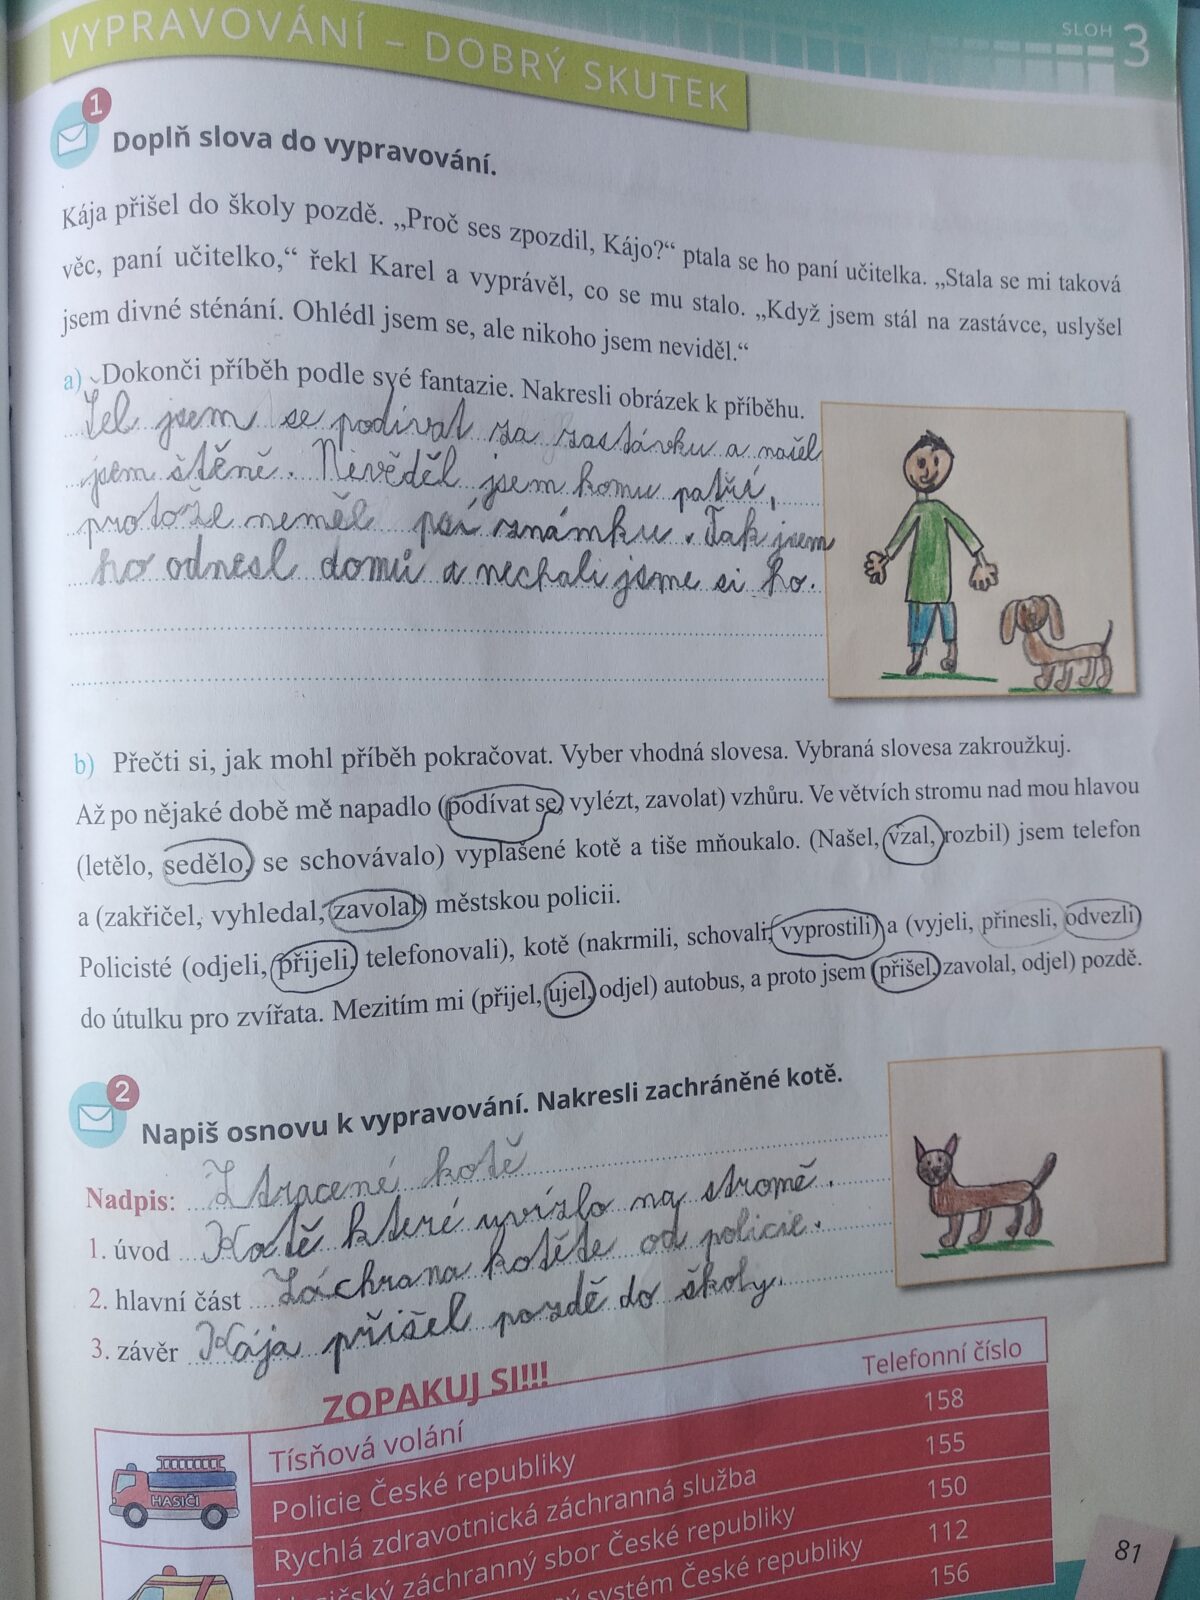 VYPRAVOVÁNÍ – DOBRÝ SKUTEK
SLOH 3
1 Doplň slova do vypravování.
Kája přišel do školy pozdě. „Proč ses zpozdil, Kájo?“ ptala se ho paní učitelka. „Stala se mi taková
věc, paní učitelko,“ řekl Karel a vyprávěl, co se mu stalo. „Když jsem stál na zastávce, uslyšel
jsem divné sténání. Ohlédl jsem se, ale nikoho jsem neviděl.“
a) Dokonči příběh podle své fantazie. Nakresli obrázek k příběhu.
Šel jsem se podívat za zastávku a našel
jsem štěně. Nevěděl jsem komu patří,
protože neměl psí známku. Tak jsem
ho odnesl domů a nechali jsme si ho.
b) Přečti si, jak mohl příběh pokračovat. Vyber vhodná slovesa. Vybraná slovesa zakroužkuj.
Až po nějaké době mě napadlo (podívat se, vylézt, zavolat) vzhůru. Ve větvích stromu nad mou hlavou
(letělo, sedělo, se schovávalo) vyplašené kotě a tiše mňoukalo. (Našel, vzal, rozbil) jsem telefon
a (zakřičel, vyhledal, zavolal) městskou policii.
Policisté (odjeli, přijeli, telefonovali), kotě (nakrmili, schovali, vyprostili) a (vyjeli, přinesli, odvezli)
do útulku pro zvířata. Mezitím mi (přijel, ujel, odjel) autobus, a proto jsem (přišel, zavolal, odjel) pozdě.
2 Napiš osnovu k vypravování. Nakresli zachráněné kotě.
Nadpis: Ztracené kotě
1. úvod Kotě které uvízlo na stromě.
2. hlavní část Záchrana kotěte od policie.
3. závěr Kája přišel pozdě do školy.
ZOPAKUJ SI!!!
Tísňová volání Telefonní číslo
Policie České republiky 158
Rychlá zdravotnická záchranná služba 155
Hasičský záchranný sbor České republiky 150
systém České republiky 112
156
HASIČI
81